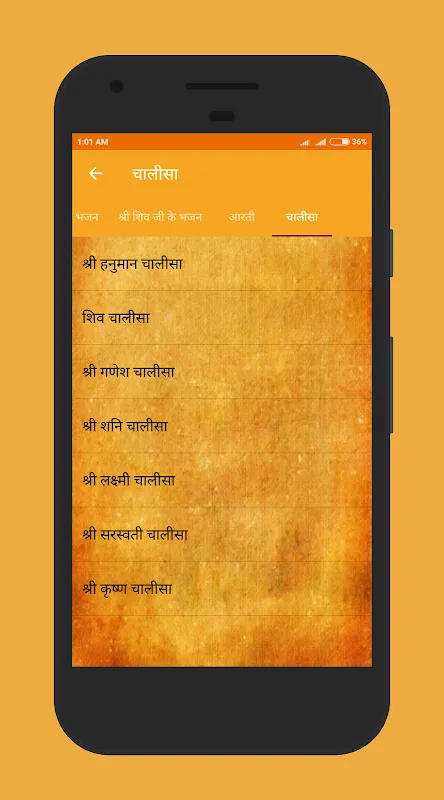 1:01 AM 36%
चालीसा
भजन श्री शिव जी के भजन आरती चालीसा
श्री हनुमान चालीसा
शिव चालीसा
श्री गणेश चालीसा
श्री शनि चालीसा
श्री लक्ष्मी चालीसा
श्री सरस्वती चालीसा
श्री कृष्ण चालीसा